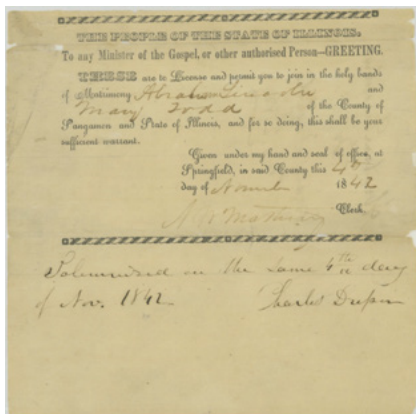 THE PEOPLE OF THE STATE OF ILLINOIS.
To any Minister of the Gospel, or other authorised Person—GREETING.
THESE are to License and permit you to join in the holy bands
of Matrimony Abraham Lincoln and
Mary Todd of the County of
Sangamon and State of Illinois, and for so doing, this shall be your
sufficient warrant.
Given under my hand and seal of office, at
Springfield, in said County this 4th
day of 1842
Clerk
Solemnized on the same 4th day
of Nov. 1842 Charles Dresser